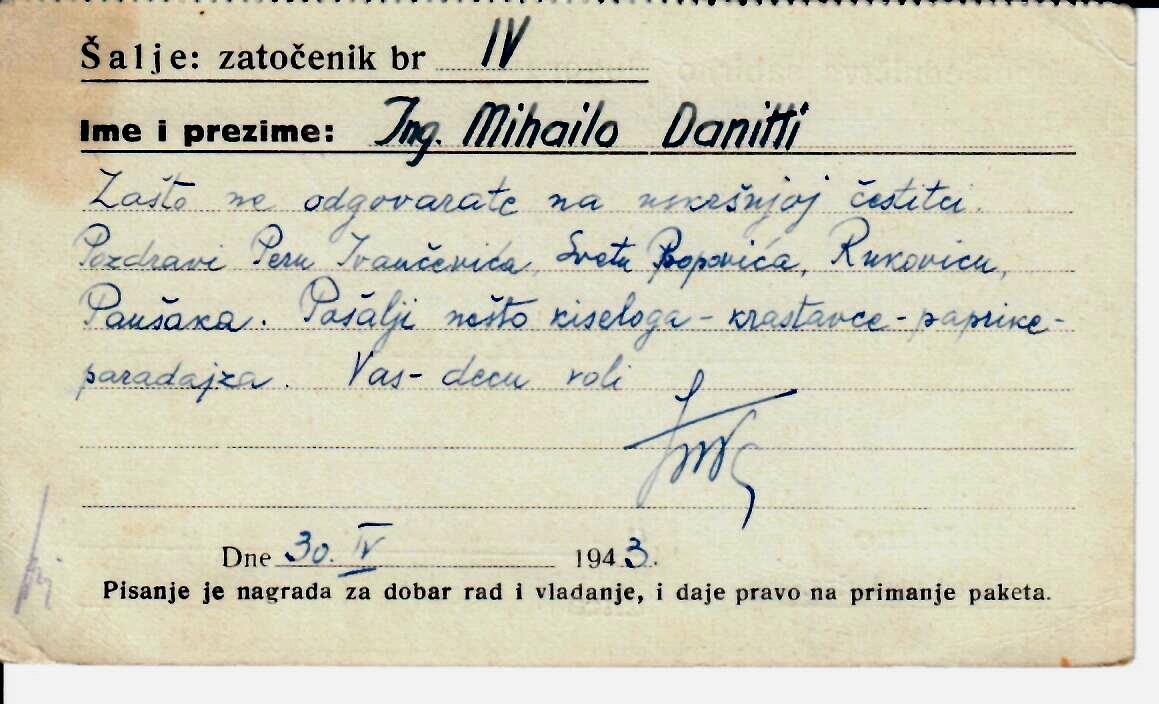 Šalje: zatočenik br IV
Ime i prezime: Ing. Mihailo Danitti
Zašto ne odgovarate na uskršnjoj čestitci.
Pozdravi Peru Ivančevića, Svetu Popovića, Rukovicu,
Paušaka. Pošalji nešto kiseloga - krastavce - paprike -
paradajza. Vas - decu voli
Dne 30. IV 1943.
Pisanje je nagrada za dobar rad i vladanje, i daje pravo na primanje paketa.